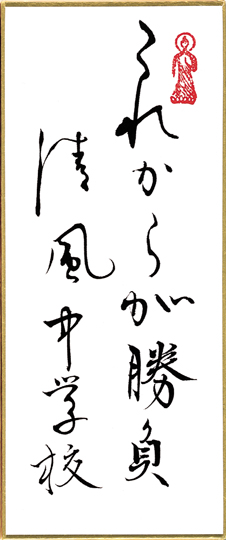 これからが勝負
清風中学校